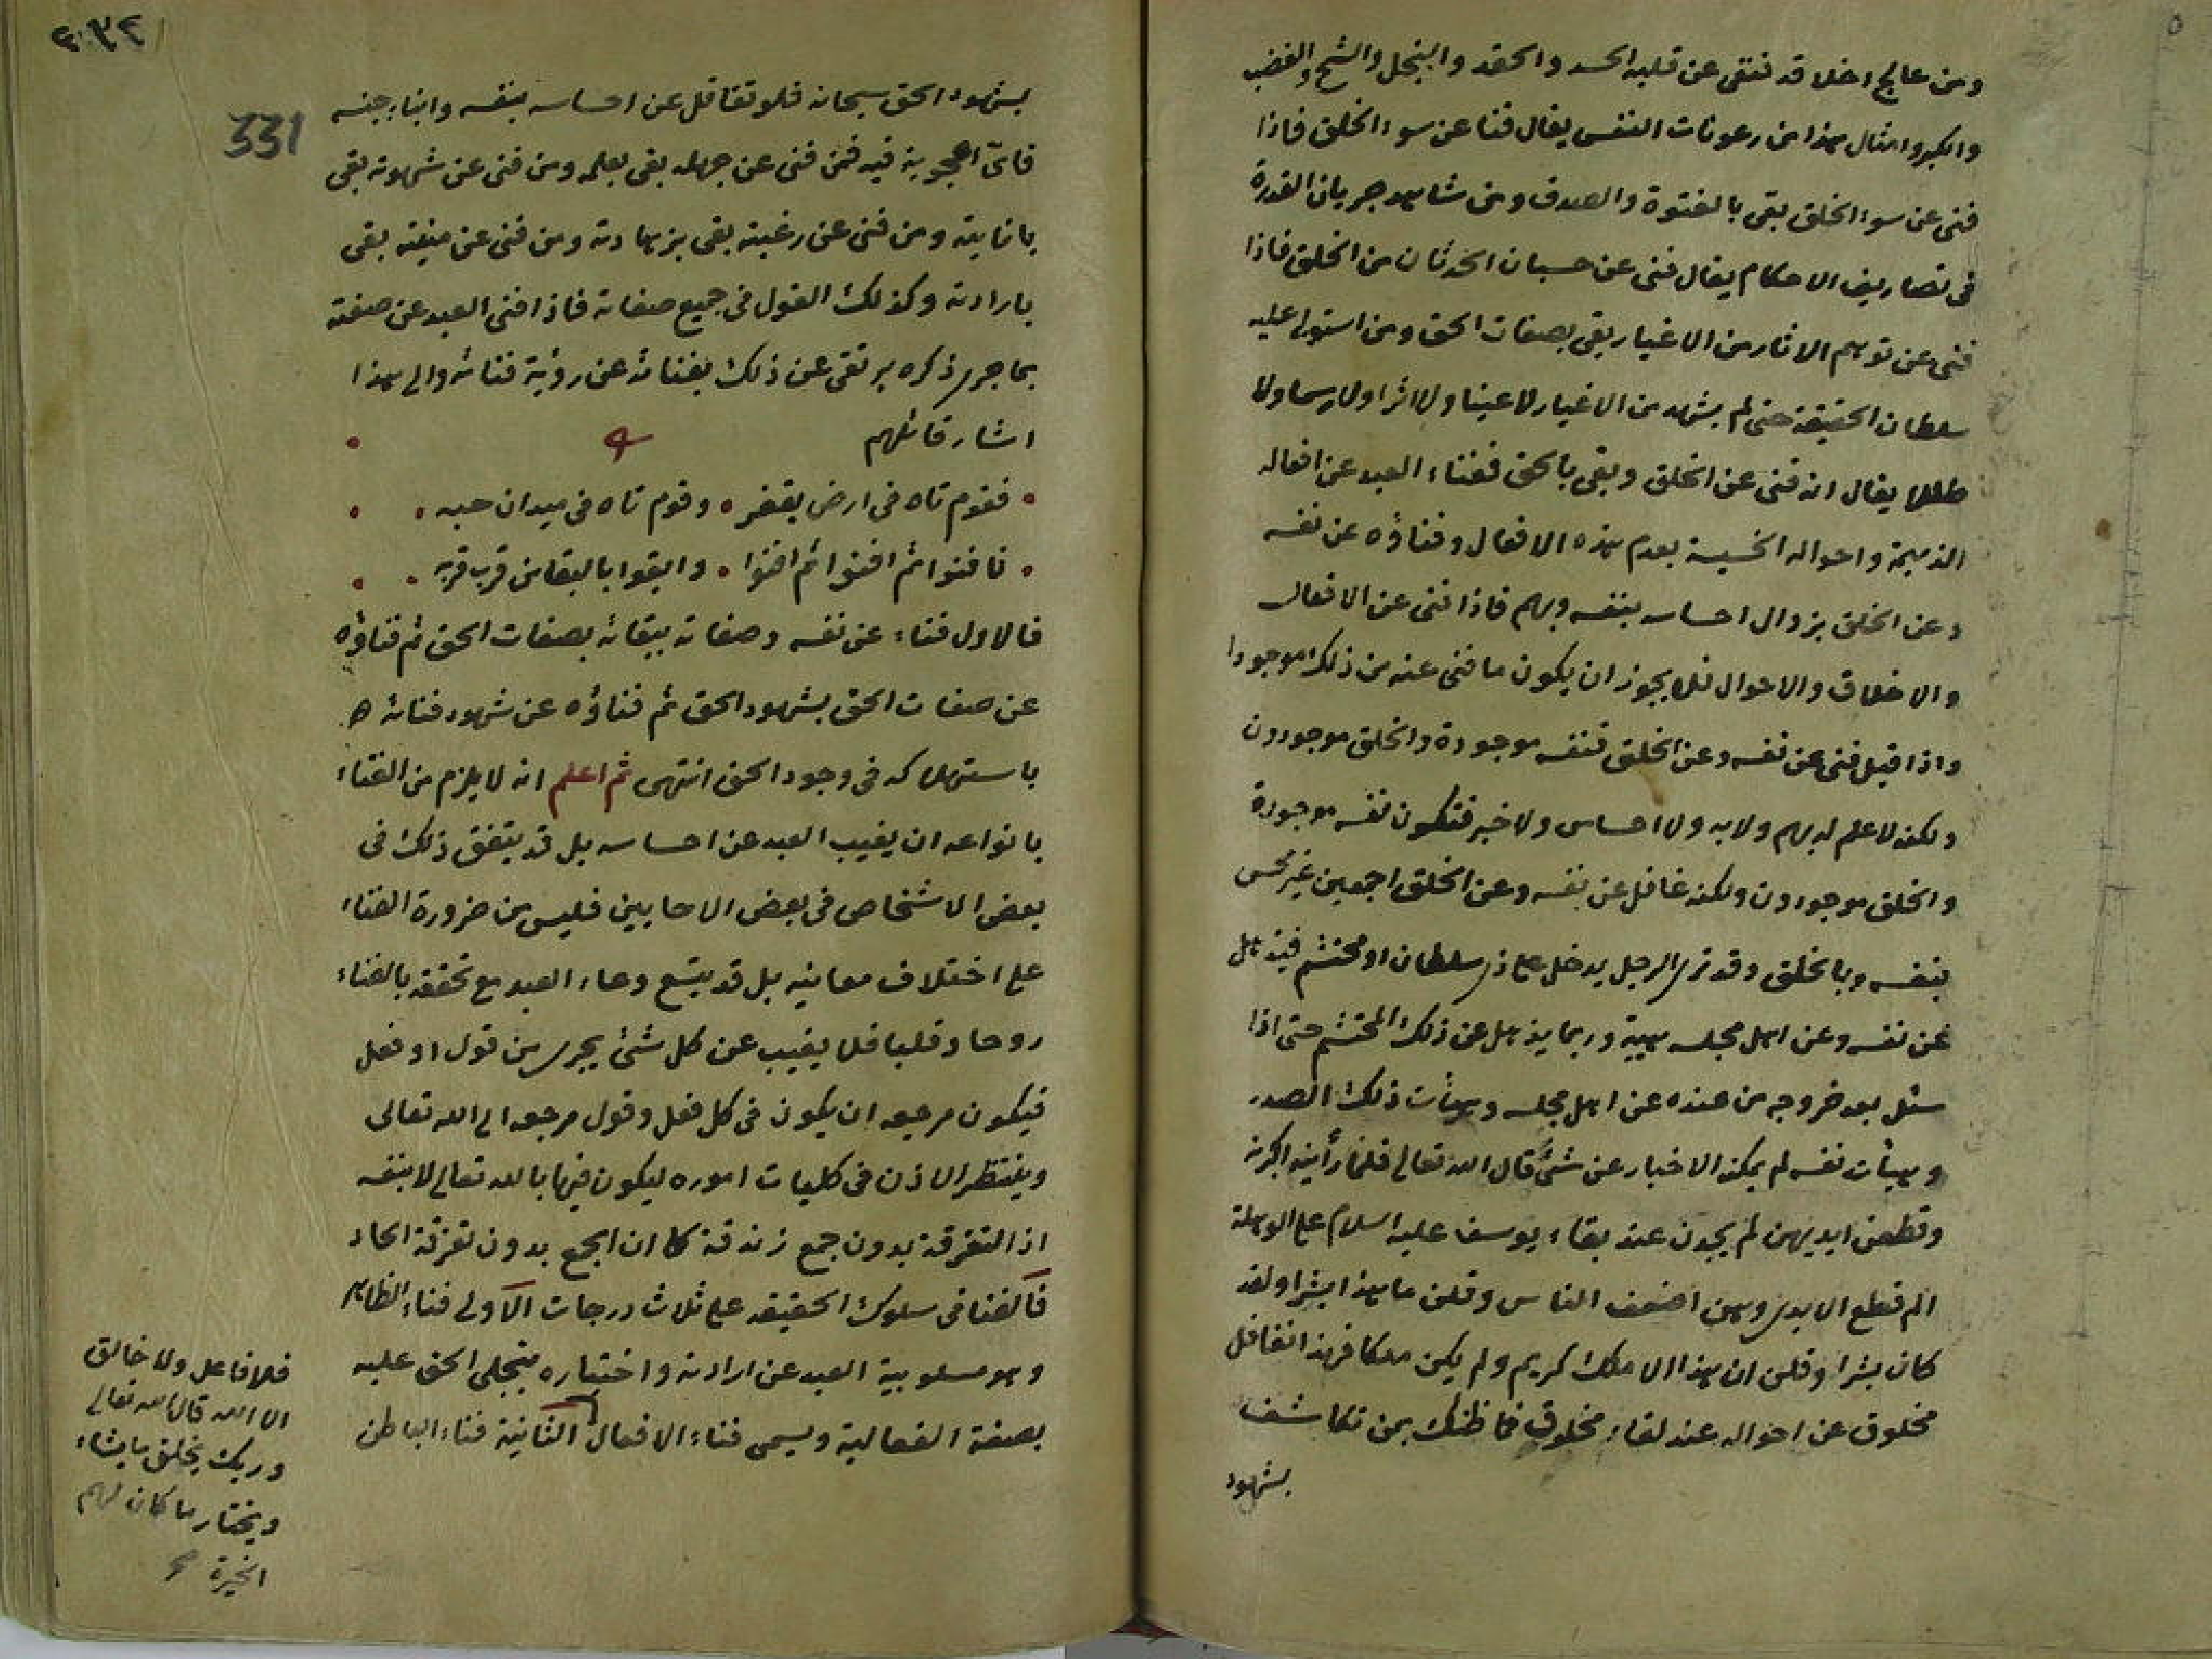 ومن عالج اخلاقه فنفى عن قلبه الحسد والحقد والبخل والشح والغضب
والكبر وامثال هذا من رعونات النفس يقال فنا عن سوء الخلق فاذا
فنى عن سوء الخلق بقى بالفتوة والصدق ومن شاهد جريان القدرة
فى تصاريف الاحكام يقال فنى عن حسبان الحدثان من الخلق فاذا
فنى عن توهم الاثار من الاغيار بقى بصفات الحق ومن استولى عليه
سلطان الحقيقة حتى لم يشهد من الاغيار لا عينا ولا اثرا ولا رسما ولا
طللا يقال انه فنى عن الخلق وبقى بالحق ففناء العبد عن افعاله
الذميمة واحواله الخسيسة بعدم هذه الافعال وفناؤه عن نفسه
وعن الخلق بزوال احساسه بنفسه وبهم فاذا فنى عن الافعال
والاخلاق والاحوال فلا يجوز ان يكون ما فنى عنه من ذلك موجودا
واذا قيل فنى عن نفسه وعن الخلق فنفسه موجودة والخلق موجودون
ولكنه لا علم له بهم ولا به ولا احساس ولا خبر فتكون نفسه موجودة
والخلق موجودون ولكنه غافل عن نفسه وعن الخلق اجمعين غير محس
بنفسه وبالخلق وقد ترى الرجل يدخل على ذى سلطان او محتشم فيذهل
عن نفسه وعن اهل مجلسه هيبة وربما يذهل عن ذلك المحتشم حتى اذا
سئل بعد خروجه من عنده عن اهل مجلسه وهيئات ذلك الصدر
وهيئات نفسه لم يمكنه الاخبار عن شئ قال الله تعالى فلما رأينه اكبرنه
وقطعن ايديهن لم يجدن عند لقاء يوسف عليه السلام على الوهلة
الم قطع الايدى وهن اضعف الناس وقلن ما هذا بشرا ولقد
كان بشرا وقلن ان هذا الا ملك كريم ولم يكن ملكا فهذا تغافل
مخلوق عن احواله عند لقاء مخلوق فما ظنك بمن تكاشف
بشهود
٢٣٢
331
بشهود الحق سبحانه فلو تغافل عن احساسه بنفسه وابناء جنسه
فاىّ اعجوبة فيه فمن فنى عن جهله بقى بعلمه ومن فنى عن شهوته بقى
بانابته ومن فنى عن رغبته بقى بزهادته ومن فنى عن منيته بقى
بارادته وكذلك القول فى جميع صفاته فاذا فنى العبد عن صفته
بما جرى ذكره يرتقى عن ذلك بفنائه عن رؤية فنائه والى هذا
اشار قائلهم
فقوم تاه فى ارض بقفر وقوم تاه فى ميدان حبه
فافنوا ثم افنوا ثم افنوا وابقوا بالبقا من قرب قربه
فالاول فناء عن نفسه وصفاته ببقائه بصفات الحق ثم فناؤه
عن صفات الحق بشهود الحق ثم فناؤه عن شهود فنائه
باستهلاكه فى وجود الحق انتهى ثم اعلم انه لا يلزم من الفناء
بانواعه ان يغيب العبد عن احساسه بل قد يتفق ذلك فى
بعض الاشخاص فى بعض الاحايين فليس من ضرورة الفناء
على اختلاف معانيه بل قد يتسع وعاء العبد مع تحققه بالفناء
روحا وقلبا فلا يغيب عن كل شئ يجرى من قول او فعل
فيكون مرجعه ان يكون فى كل فعل وقول مرجعه الى الله تعالى
وينتظر الاذن فى كليات اموره ليكون فيها بالله تعالى لا بنفسه
اذ التفرقة بدون جمع زندقة كما ان الجمع بدون تفرقة الحاد
فالفنا فى سلوك الحقيقة على ثلاث درجات الاولى فناء الظاهر
وهو مسلوبية العبد عن ارادته واختياره بتجلى الحق عليه
بصفة الفعالية ويسمى فناء الافعال الثانية فناء الباطن
فلا فاعل ولا خالق
الا الله قال الله تعالى
وربك يخلق ما يشاء
ويختار ما كان لهم
الخيرة